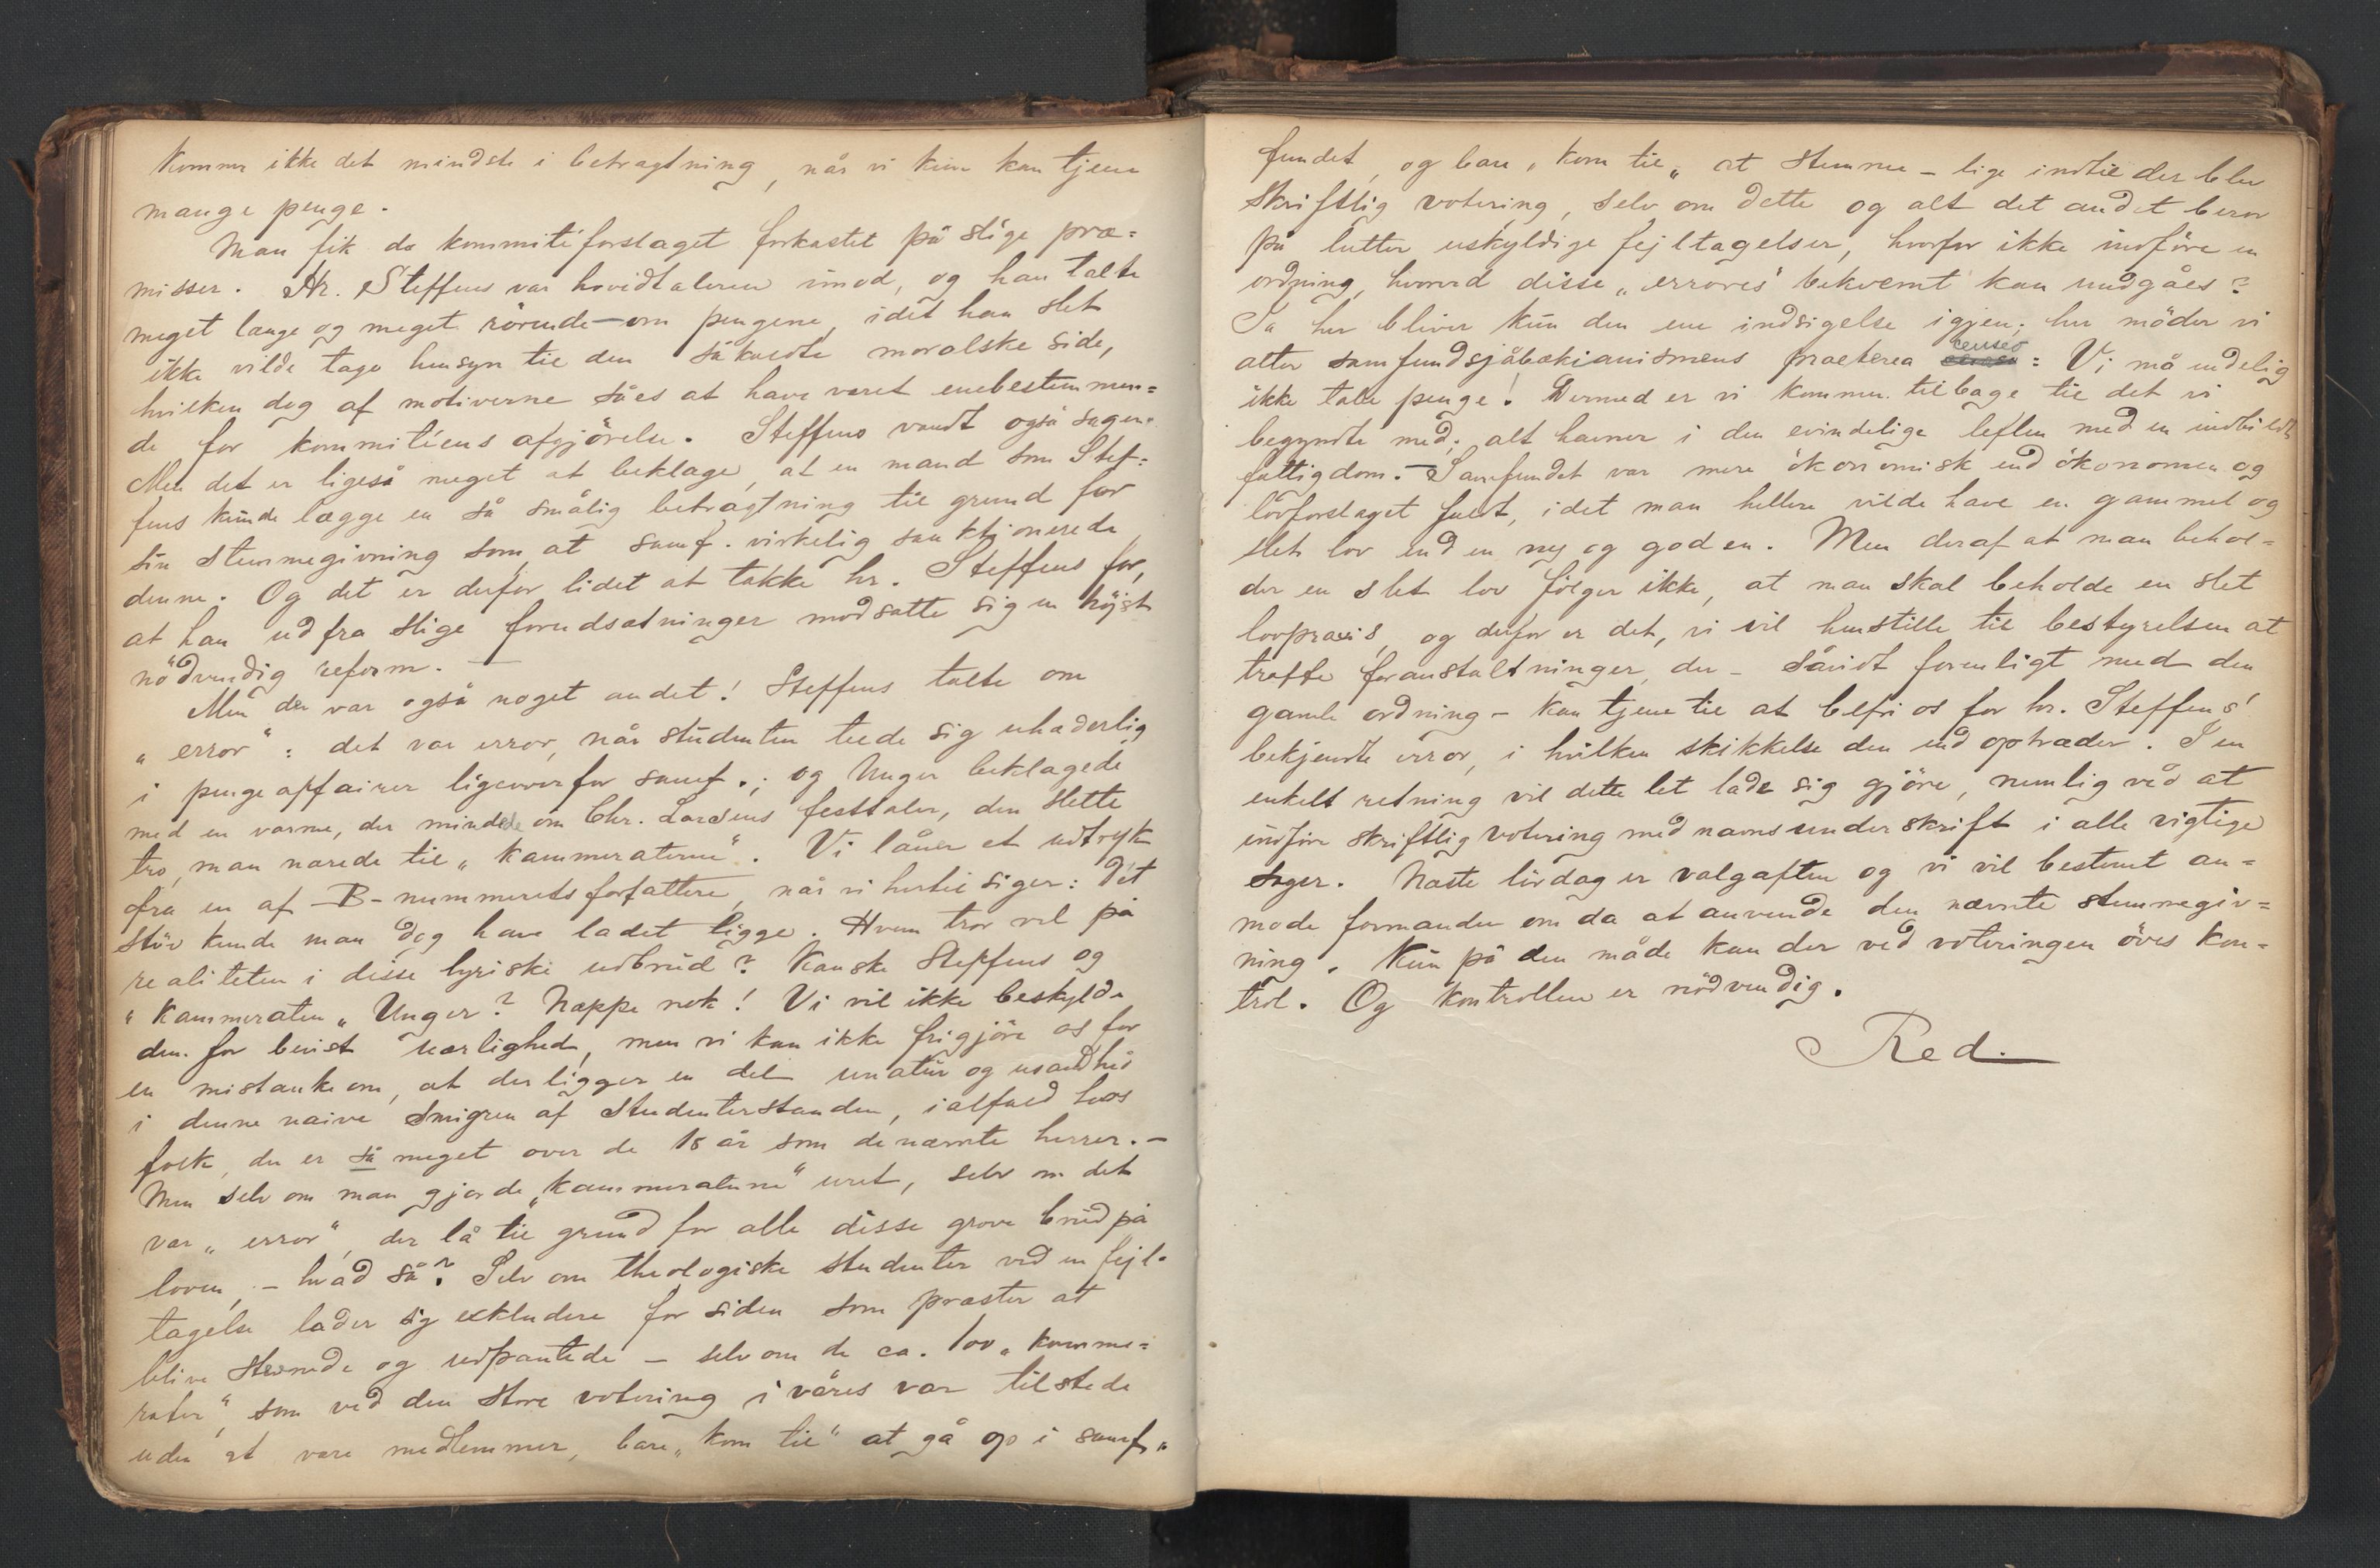 kommer ikke det mindste i betragtning, når vi kun kan tjene
mange penge.
Man fik da kommitéforslaget forkastet på slige præ=
misser. Hr. Steffens var hovidtaleren imod, og han talte
meget længe og meget rörende — om pengene, idet han slet
ikke vilde tage hensyn til den såkaldte moralske side,
hvilken dog af motiverne såes at have været enebestemmen=
de for kommitéens afgjörelse. Steffens vandt også sagen.
Men det er ligeså meget at beklage, at en mand som Stef=
fens kunde lægge en så smålig betragtning til grund for
sin stemmegivning som at samf. virkelig sanktionerede
denne. Og det er derfor lidet at takke hr. Steffens for,
at han ud fra slige forudsætninger modsatte sig en höjst
nödvendig reform. —
Men der var også noget andet! Steffens talte om
„error“: det var error, når studenten teede sig uhæderlig
i pengeaffairer ligeoverfor samf.; og Unger beklagede
med en varme, der mindede om Chr. Larsens festtaler, den slette
tro, man nærede til „kammeraterne“. Vi låner et udtryk
fra en af B-nummerets forfattere, når vi hertil siger: dét
stöv kunde man dog have ladet ligge. Hvem tror vel på
realiteten i disse lyriske udbrud? Kanske Steffens og
„kammeraten„ Unger? Næppe nok! Vi vil ikke beskylde
dem for bevist uærlighed, men vi kan ikke frigjöre os for
en mistanke om, at der ligger en del unatur og usandhed
i denne naive smigren af studenterstanden, ialfald hos
folk, der er så meget over de 18 år som de nævnte herrer. —
Men selv om man gjorde „kammeraterne“ uret, selv om det
var „error“, der lå til grund for alle disse grove brud på
loven, — hvad så? Selv om theologiske studenter ved en fejl-
tagelse lader sig exkludere for siden som præster at
blive stevnede og udpantede — selv om de ca. 100 „kamme=
rater“, som ved den store votering i våres var tilstede
uden at være medlemmer, bare „kom til“ at gå op i samf„
fundet, og bare „kom til„ at stemme — lige indtil der blev
skriftlig votering, selv om dette og alt det andet beror
på lutter uskyldige fejltagelser, hvorfor ikke indföre en
ordning, hvorved disse „errores“ bekvemt kan undgåes?
Ja her bliver kun den ene indsigelse igjen; her möder vi
atter samfundsjåbækianismens praeterea censeo: Vi må endelig
ikke tabe penge! Dermed er vi kommen tilbage til det vi
begyndte med; alt havner i den evindelige leflen med en indbildt
fattigdom. — Samfundet var mere ökonomisk end ökonomen og
lovforslaget faldt, idet man hellere vilde have en gammel og
slet lov end en ny og god en. Men deraf at man behol=
der en slet lov fölger ikke, at man skal beholde en slet
lovpraxis, og derfor er det, vi vil henstille til bestyrelsen at
træffe foranstaltninger, der — såvidt forenligt med den
gamle ordning — kan tjene til at befri os for hr. Steffens'
bekjendte error, i hvilken skikkelse den end optræder. I en
enkelt retning vil dette let lade sig gjöre, nemlig ved at
indföre skriftlig votering med navns underskrift i alle vigtige
sager. Næste lördag er valgaften og vi vil bestemt an=
mode formanden om da at anvende den nævnte stemmegiv=
ning. Kun på den måde kan der ved voteringen öves kon=
trol. Og kontrollen er nödvendig.
Red.